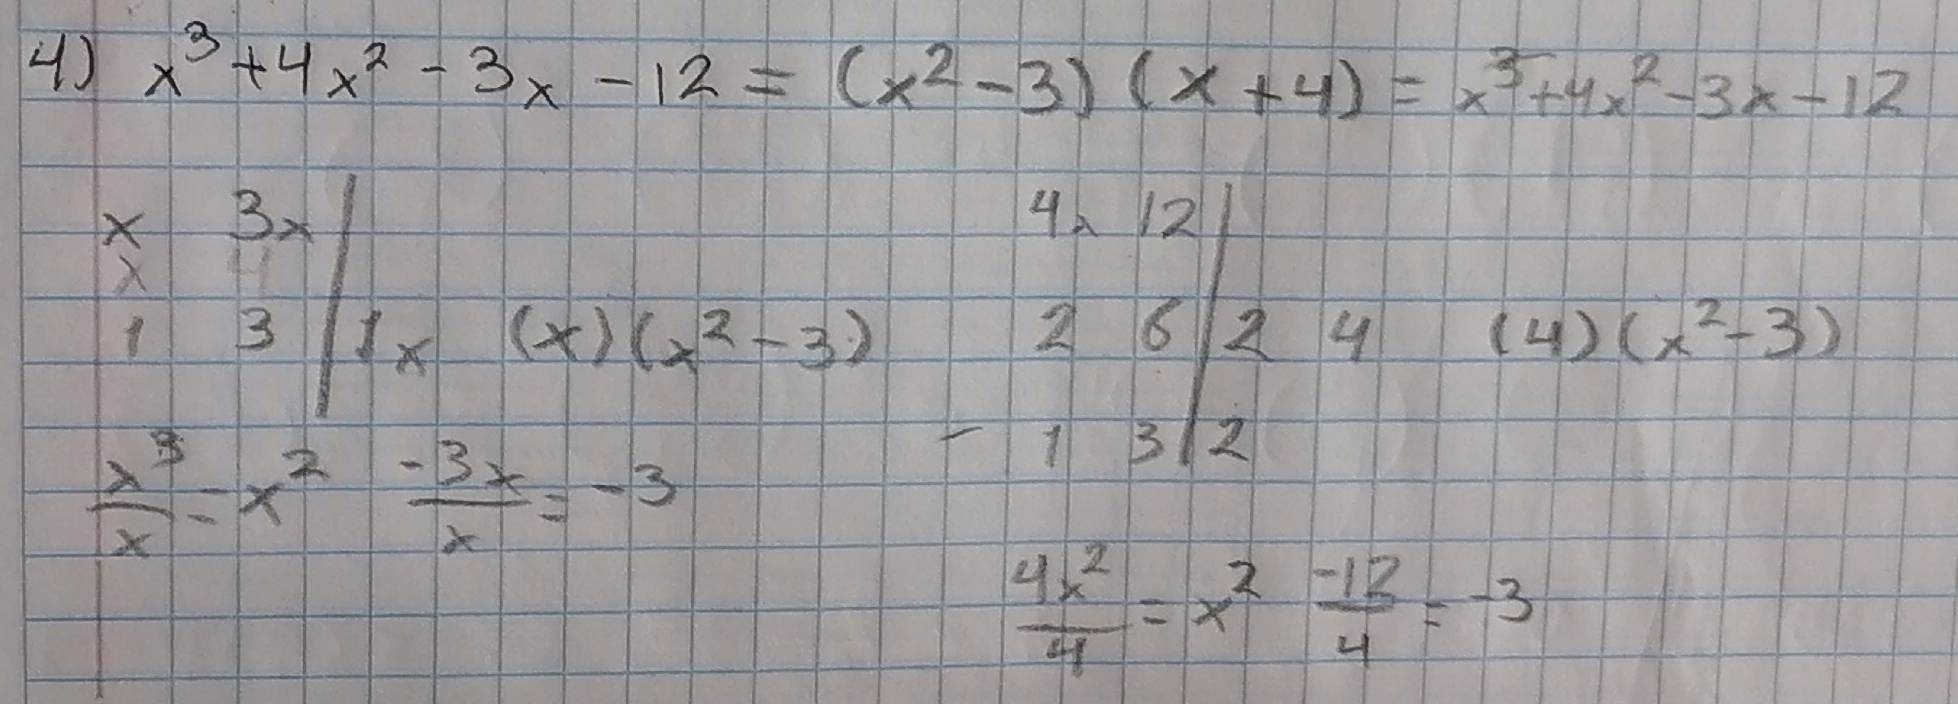 4) x³ + 4x² - 3x - 12 = (x² - 3) (x + 4) = x³ + 4x² - 3x - 12
x 3x | 4x 12 |
x 4
1 3 | 1x (x)(x² - 3) 2 6 | 2 4 (4)(x² - 3)
- 1 3 | 2
x³/x = x² -3x/x = -3
4x²/4 = x² -12/4 = -3